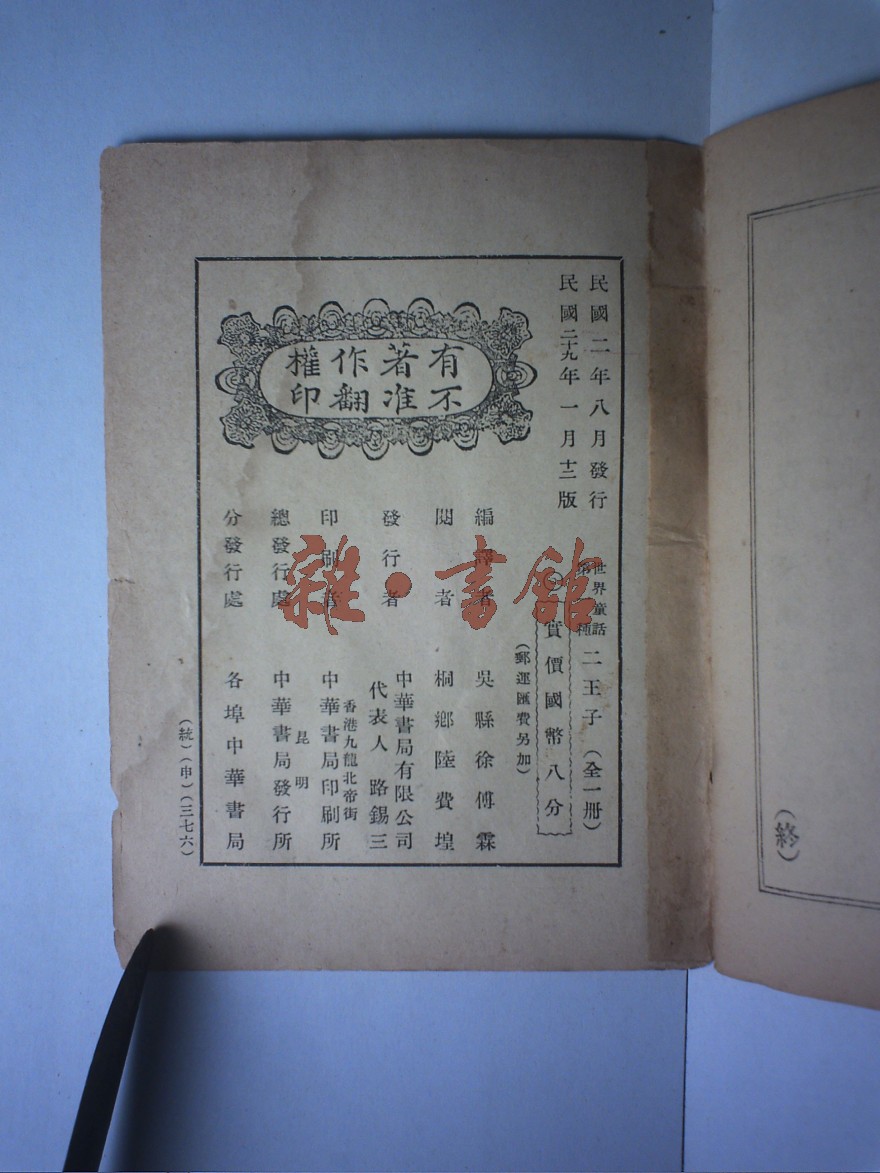 民國二年八月發行
民國二十九年一月十二版
世界童話
二王子（全一册）
實價國幣八分
（郵運匯費另加）
有著作權
不准翻印
編譯者 吳縣徐傅霖
閱者 桐鄉陸費堭
發行者 中華書局有限公司
代表人 路錫三
印刷者 香港九龍北帝街
中華書局印刷所
總發行處 昆明
中華書局發行所
分發行處 各埠中華書局
（統）（申）（三七六）
（終）
雜·書館